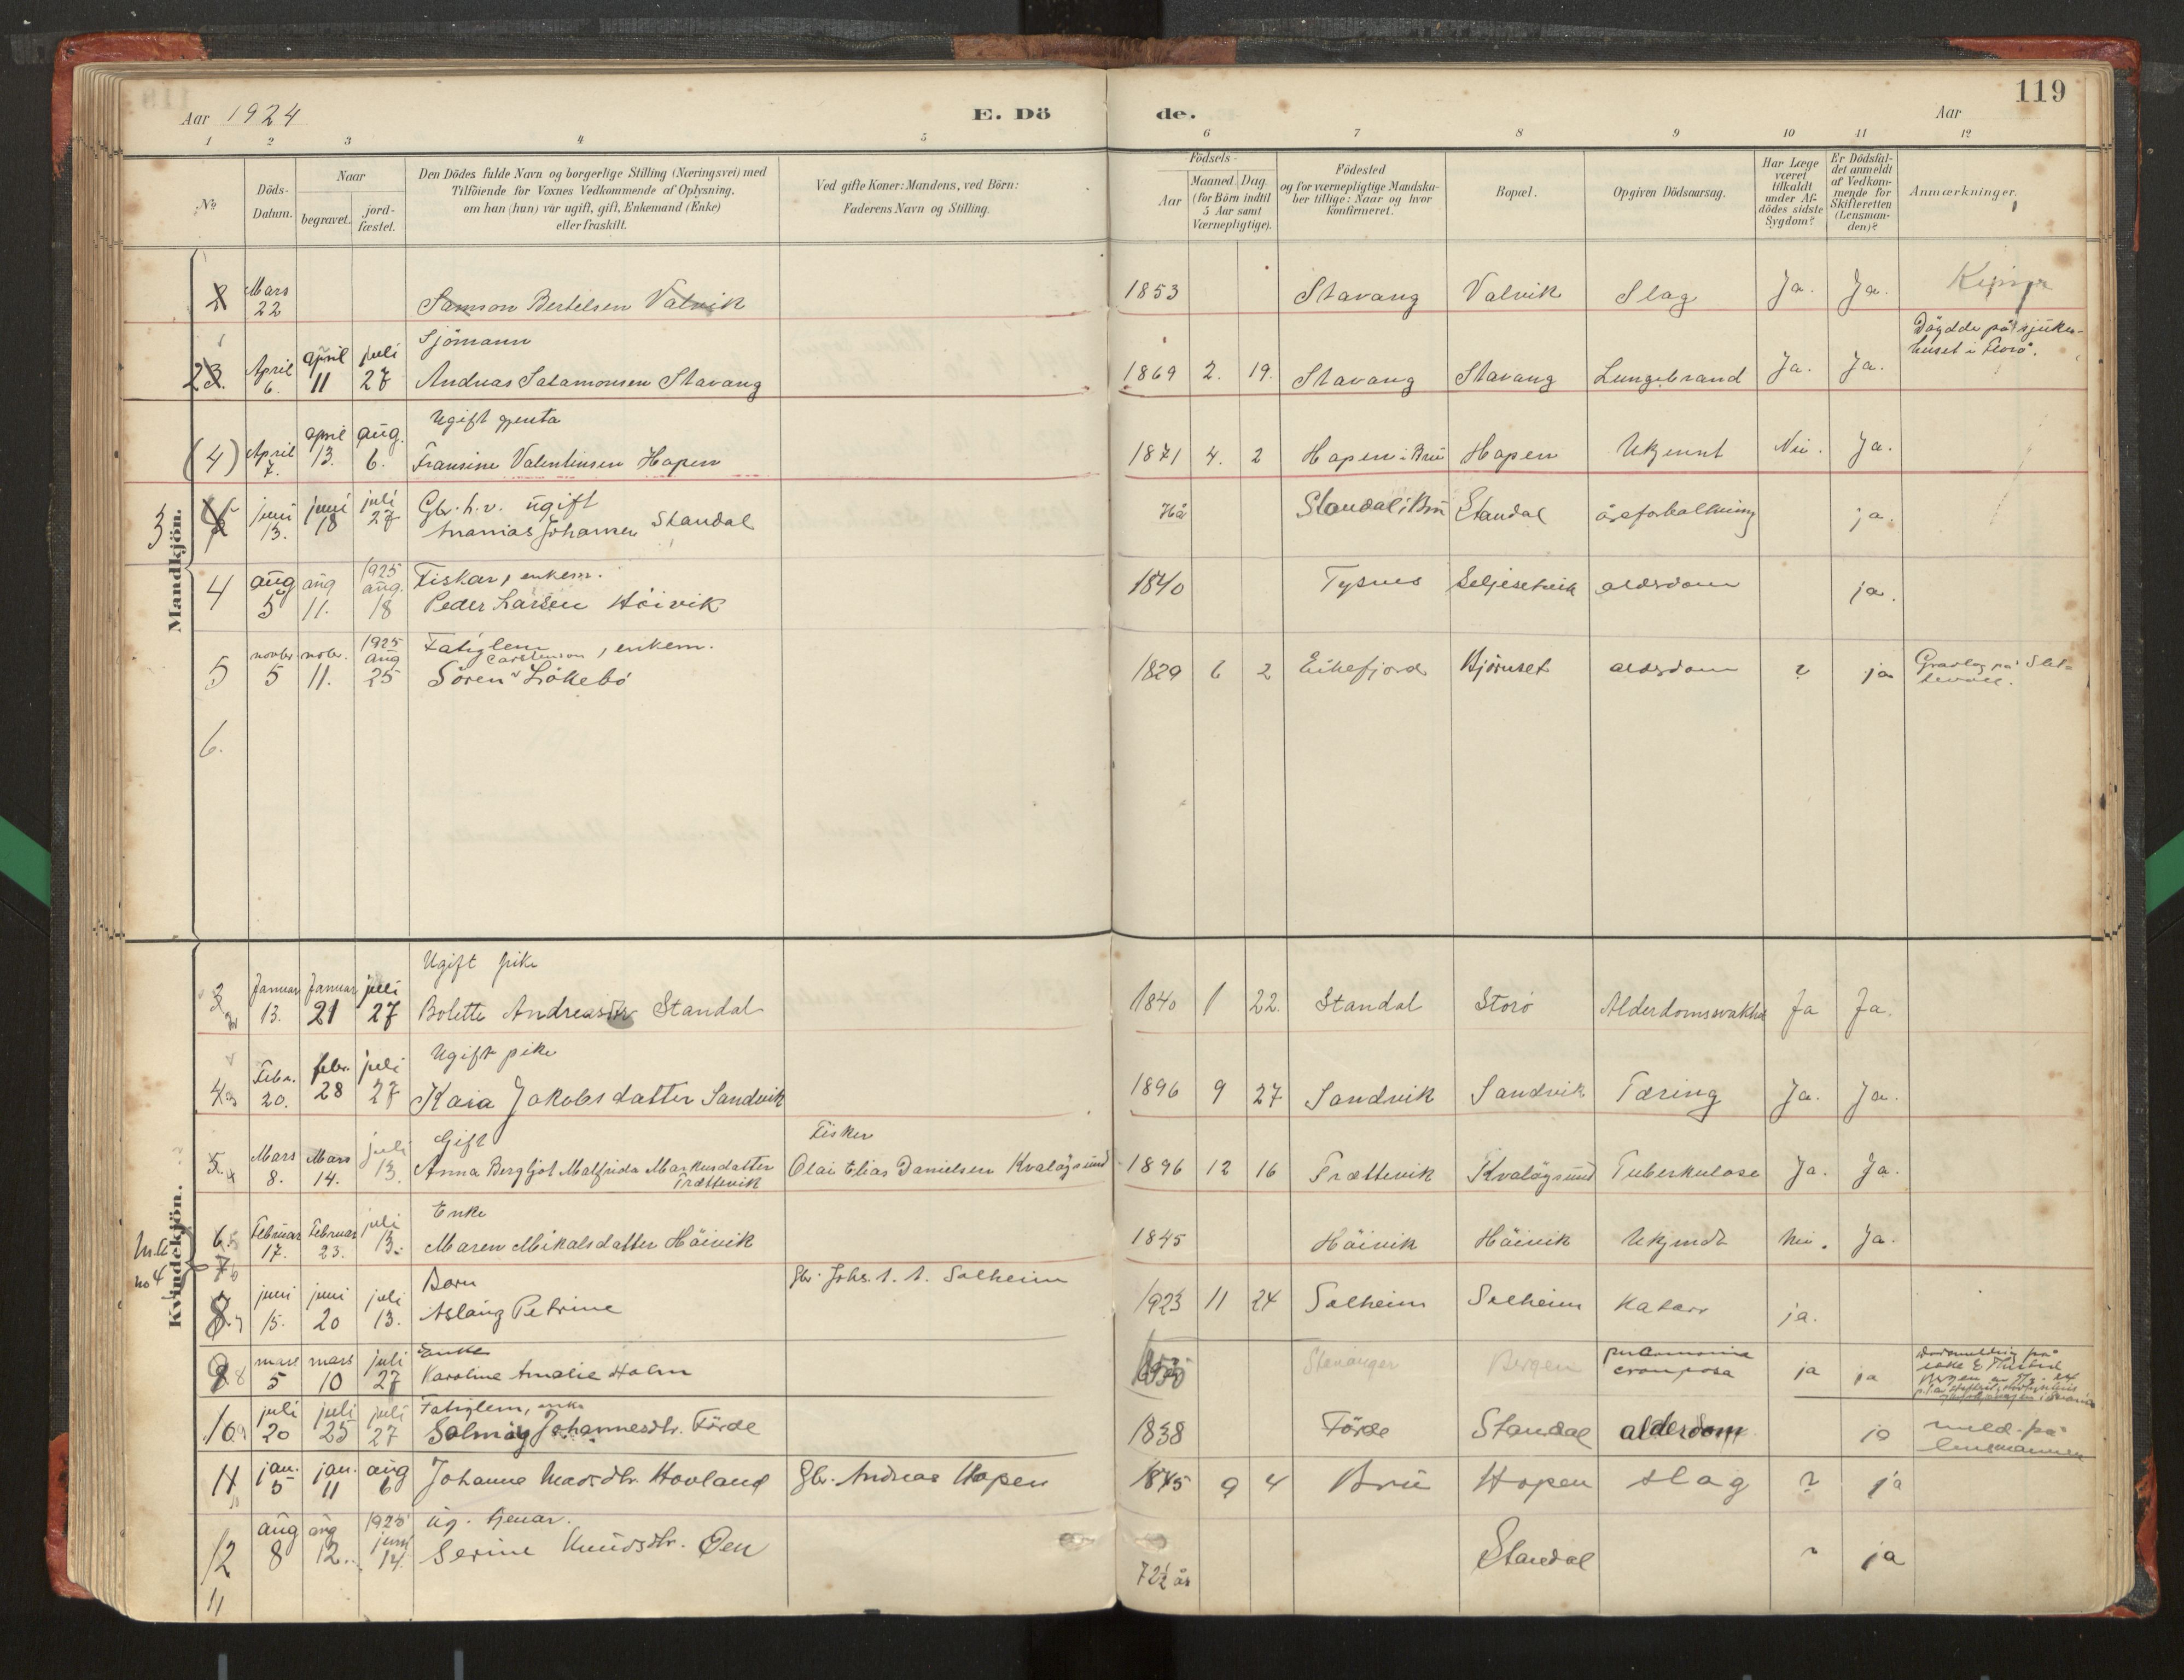 119
Aar 1924 E. Dö de. Aar
1 2 3 4 5 6 7 8 9 10 11 12
No
Döds-Datum.
Naar
begravet.
jord-fæstet.
Den Dödes fulde Navn og borgerlige Stilling (Næringsvei) med
Tilföiende for Voxnes Vedkommende af Oplysning,
om han (hun) var ugift, gift, Enkemand (Enke)
eller fraskilt.
Ved gifte Koner: Mandens, ved Börn:
Faderens Navn og Stilling.
Födsels-
Aar
Maaned. Dag.
(for Börn indtil
5 Aar samt
Værnepligtige).
Födested
og for værnepligtige Mandska-
ber tillige: Naar og hvor
konfirmeret.
Bopæl.
Opgiven Dödsaarsag.
Har Læge
været
tilkaldt
under Af-
dödes sidste
Sygdom?
Er Dödsfal-
det anmeldt
af Vedkom-
mende for
Skifteretten
(Lensman-
den)?
Anmærkninger.
Mandkjön.
2 Mars 22 Samson Bertelsen Valvik 1853 Stavang Valvik Slag Ja. Ja.
Sjömann
23. April 6. april 11 juli 27 Andreas Salamonsen Stavang 1869 2. 19. Stavang Stavang Lungebrand Ja. Ja. Döydde på sjuke-
huset i Florö.
Ugift gjenta
(4) April 7. april 13. aug. 6. Fransine Valentinsen Hopen 1871 4. 2 Hopen i Bru Hopen Ukjennt Nei. Ja.
3 juni 13. juni 18 juli 27 Gbr. h.v. ugift
Ananias Johansen Standal 76 år Standal i Bru Standal åreforkalkning ja.
4 aug 5 aug 11. 1925 aug. 18 Fiskar, enkem.
Peder Larsen Höivik 1840 Tysnes Seljesetvik aldrdom ja.
5 novbr. 5 nobr. 11. 1925 aug 25 Fatiglem, enkem.
Sören Carstensen Lökkebö 1829 6 2 Eikefjord Hjörnset aldrdom ? ja Gravlag på Stet-
6.
Kvindekjön.
Ugift pike
3 2 Januar 13. Januar 21 juli 27 Bolette Andreasdtr Standal 1840 1 22. Standal Storö Alderdomssvakhet Ja Ja.
Ugift pike
4 3 Febr. 20. febr. 28 juli 27 Kaia Jakobsdatter Sandvik 1896 9 27 Sandvik Sandvik Tæring Ja. Ja.
Gift Fisker
5. 4 Mars 8. Mars 14. juli 13. Anna Bergljot Malfrida Markusdatter Olai Elias Danielsen Kvalögsund 1896 12 16 Trættevik Kvalögsund Tuberkulose Ja. Ja.
Trættevik
Enke
6. 5 Februar 17. Februar 23. juli 13. Maren Mikalsdatter Höivik 1845 Höivik Höivik Ukjendt Nei. Ja.
no 4 7 6
Barn Gbr. Johs. A. A. Solheim
8. 7 juni 15. juni 20 juli 13. Aslaug Petrine 1923 11 24 Solheim Solheim Katarr ja.
Enke
9 8 mars 5 mars 10 juli 27 Karoline Amalie Holm Stavanger Bergen pneumonia
crouposa ja ja
Fatiglem, enke
10 9 juli 20 juli 25 juli 27 Solmöy Johannesdtr. Förde 1838 Förde Standal alderdom ja meld. på
lensmannen
11 10 jan. 5 jan. 11 aug 6 Johanne Madsdtr. Hovland Gbr. Andreas Hopen 1845 9 4 Bru Hopen slag ? ja
ug. tjenar.
12 aug 8 aug 12. 1925 juni 14. Serine Knudsdtr. Öen 72½ år Standal ? ja
11